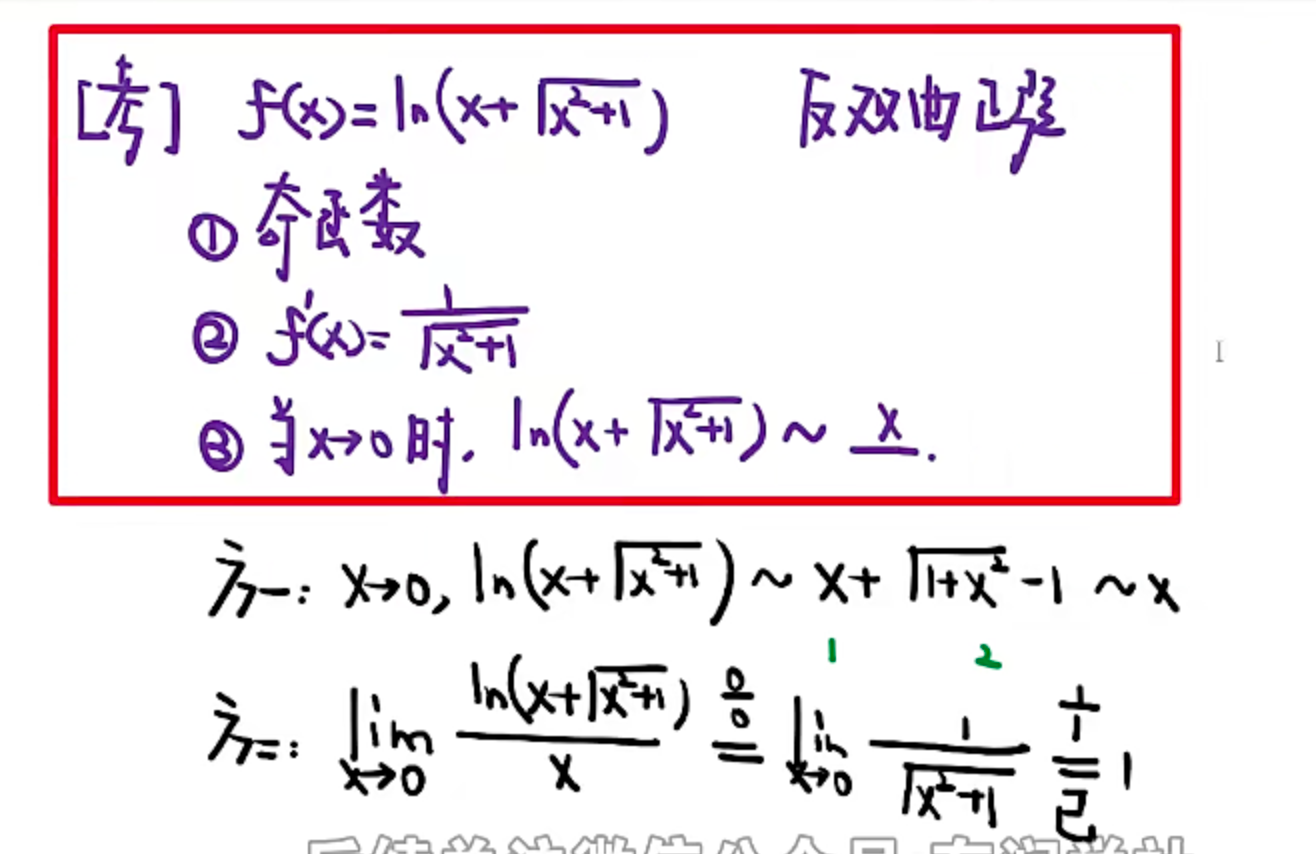 [考] f(x)=ln(x+√(x²+1)) 反双曲正弦
① 奇函数
② f'(x)=1/√(x²+1)
③ 当x→0时, ln(x+√(x²+1))~x.
方一: x→0, ln(x+√(x²+1))~x+√(1+x²)-1~x
1 2
方二: lim x→0 ln(x+√(x²+1))/x 0/0 = lim x→0 1/√(x²+1) 1/1 = 已 1